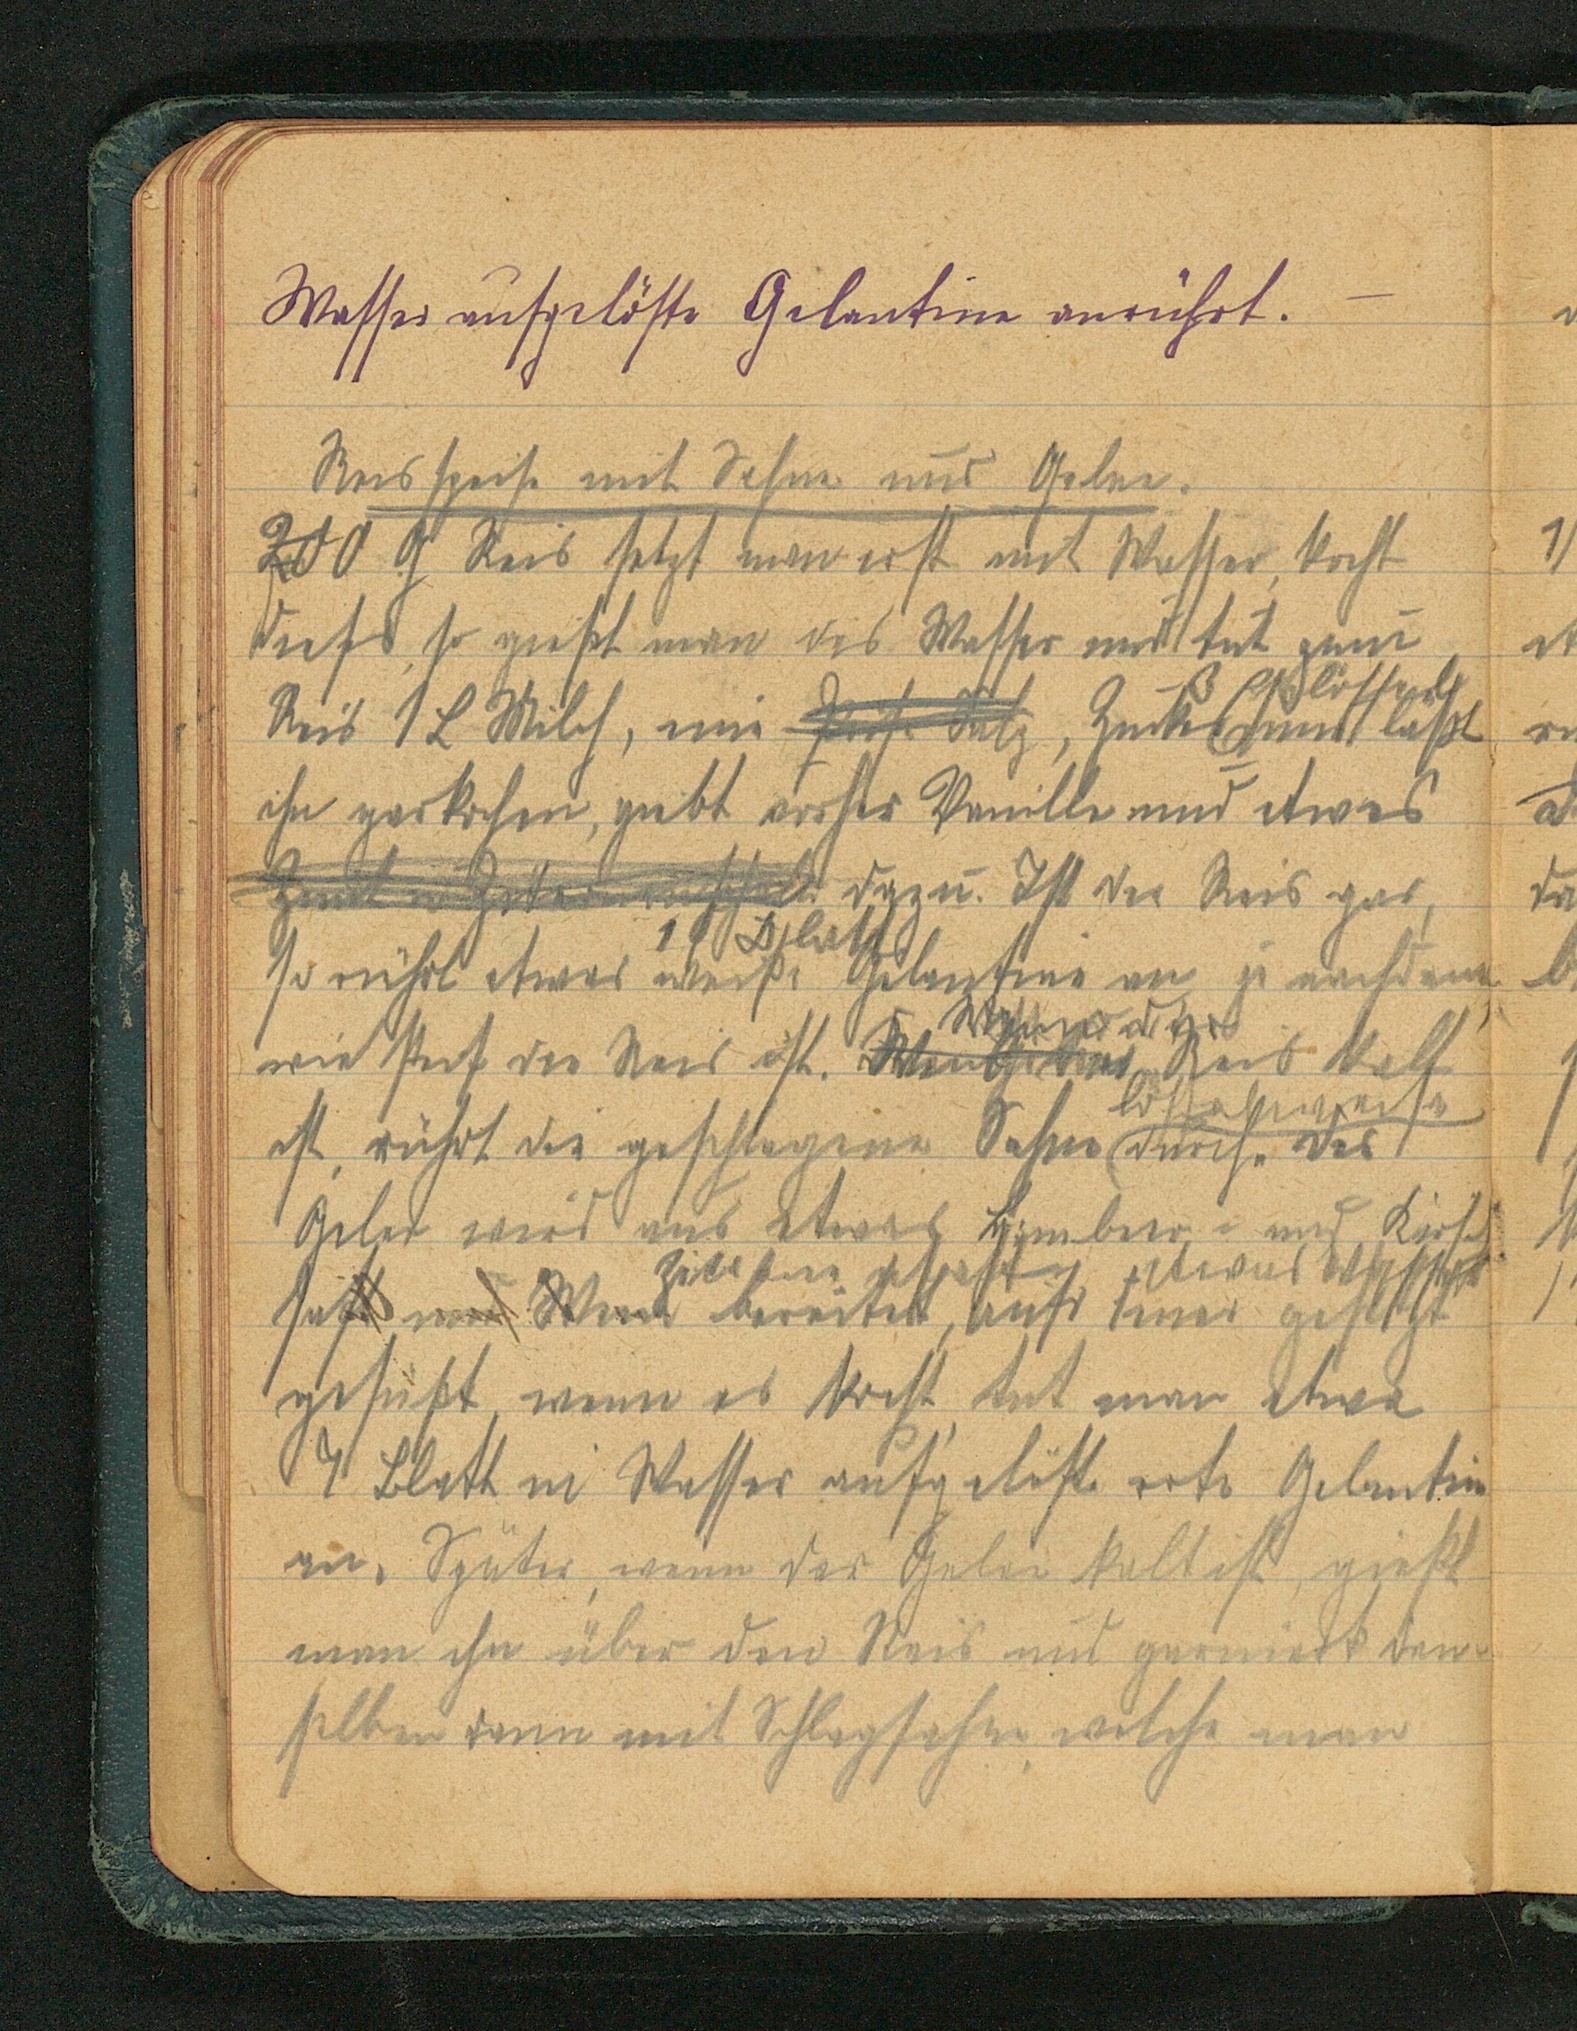 Wasser aufgelöste Gelantine anrührt. —
Reisspeise mit Sahne und Gelee.
200 g Reis setzt man erst mit Wasser, kocht
dieses, so gießt man das Wasser und tut zum
Reis 1 L Milch, eine Prise Salz, Zucker und läßt
3 Eßlöffel
ihn garkochen, giebt vorher Vanille und etwas
dazu. Ist der Reis gar,
11 Blatt
so rührt etwas weiße Gelantine an je nachdem
wie steif der Reis ist. Reis kalt
Wenn der
ist, rührt die geschlagene Sahne durch. Das
löffelweise
Gelee wird aus etwas Himbeer- und Kirsch
saft und Wein bereitet, aufs Feuer gesetzt
etwas Wasser
gesüßt, wenn es kocht, tut man etwa
7 Blatt in Wasser aufgelöste rote Gelantine
an. Später, wenn der Gelee kalt ist, gießt
man ihn über den Reis und garniert den-
selben dann mit Schlagsahne, welche man